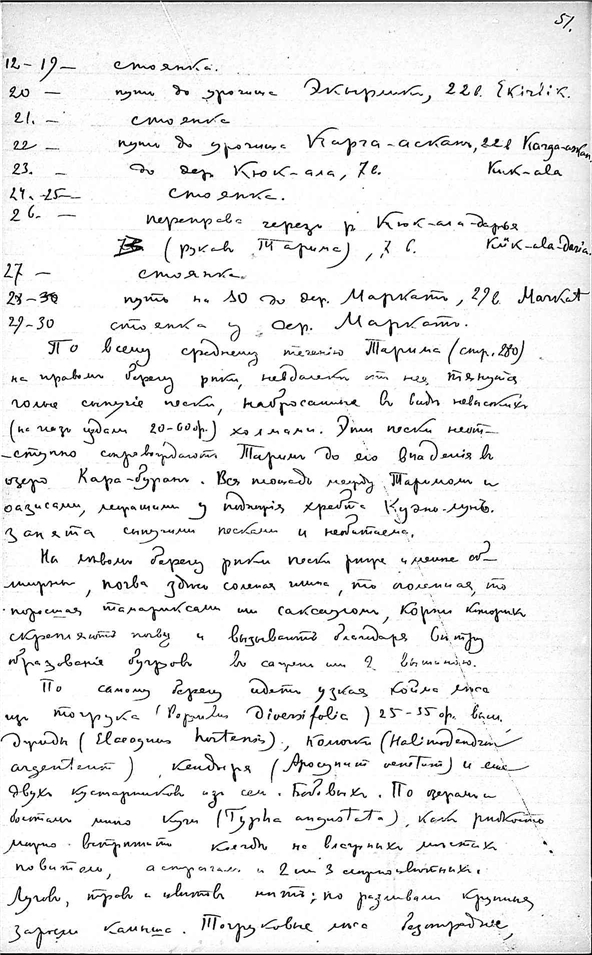 51.
12–19 — стоянка.
20 — путь до урочища Экырлик, 22 в. Ekirlik.
21. — стоянка
22 — путь до урочища Карга-аскан, 22 в Karga-askan.
23. — до дер Кюк-ала, 7 в. Kuk-ala
24.-25 — стоянка.
26. — переправа через р Кюк-ала-дарья
(рукав Тарима), 7 в. Kük-ala-Daria.
27 — стоянка.
28–30 путь на SO до дер. Маркат, 29 в. Markat
29-30 стоянка у дер. Маркат.
По всему среднему течению Тарима (стр. 280)
на правом берегу реки, невдалеке от нее, тянутся
голые сыпучие пески, набросанные в виде невысоких
(на глаз издали 20-60 ф.) холмами. Эти пески неот-
ступно сопровождают Тарим до его впадения в
озеро Кара-буран. Вся площадь между Таримом и
оазисами, лежащими у подножия хребта Куэнь-лунь.
занята сыпучими песками и необитаема.
На левом берегу реки пески реже и менее об-
ширны, почва здесь соленая глина, то оголенная, то
поросшая тамариксами или саксаулом, корни которых
скрепляют почву и вызывают благодаря ветру
образование бугров в сажен или 2 вышиною.
По самому берегу идет узкая кайма леса
из тогрука (Populus Diversifolia) 25-35 ф. выш.,
Джиды (Elaeagnus hortensis), колючки (Halimodendron
argenteum), кендыря (Apocynum venetum) и еще
двух кустарников из сем. Бобовых. По озерам и
болотам много куги (Typha angustata), как редкость
можно встретить кое-где на влажных местах
повитель, астрагал и 2 или 3 сложноцветных.
Лугов, трав и цветов нет; по разливам крупные
заросли камыша. Тогруковые леса безотрадные,